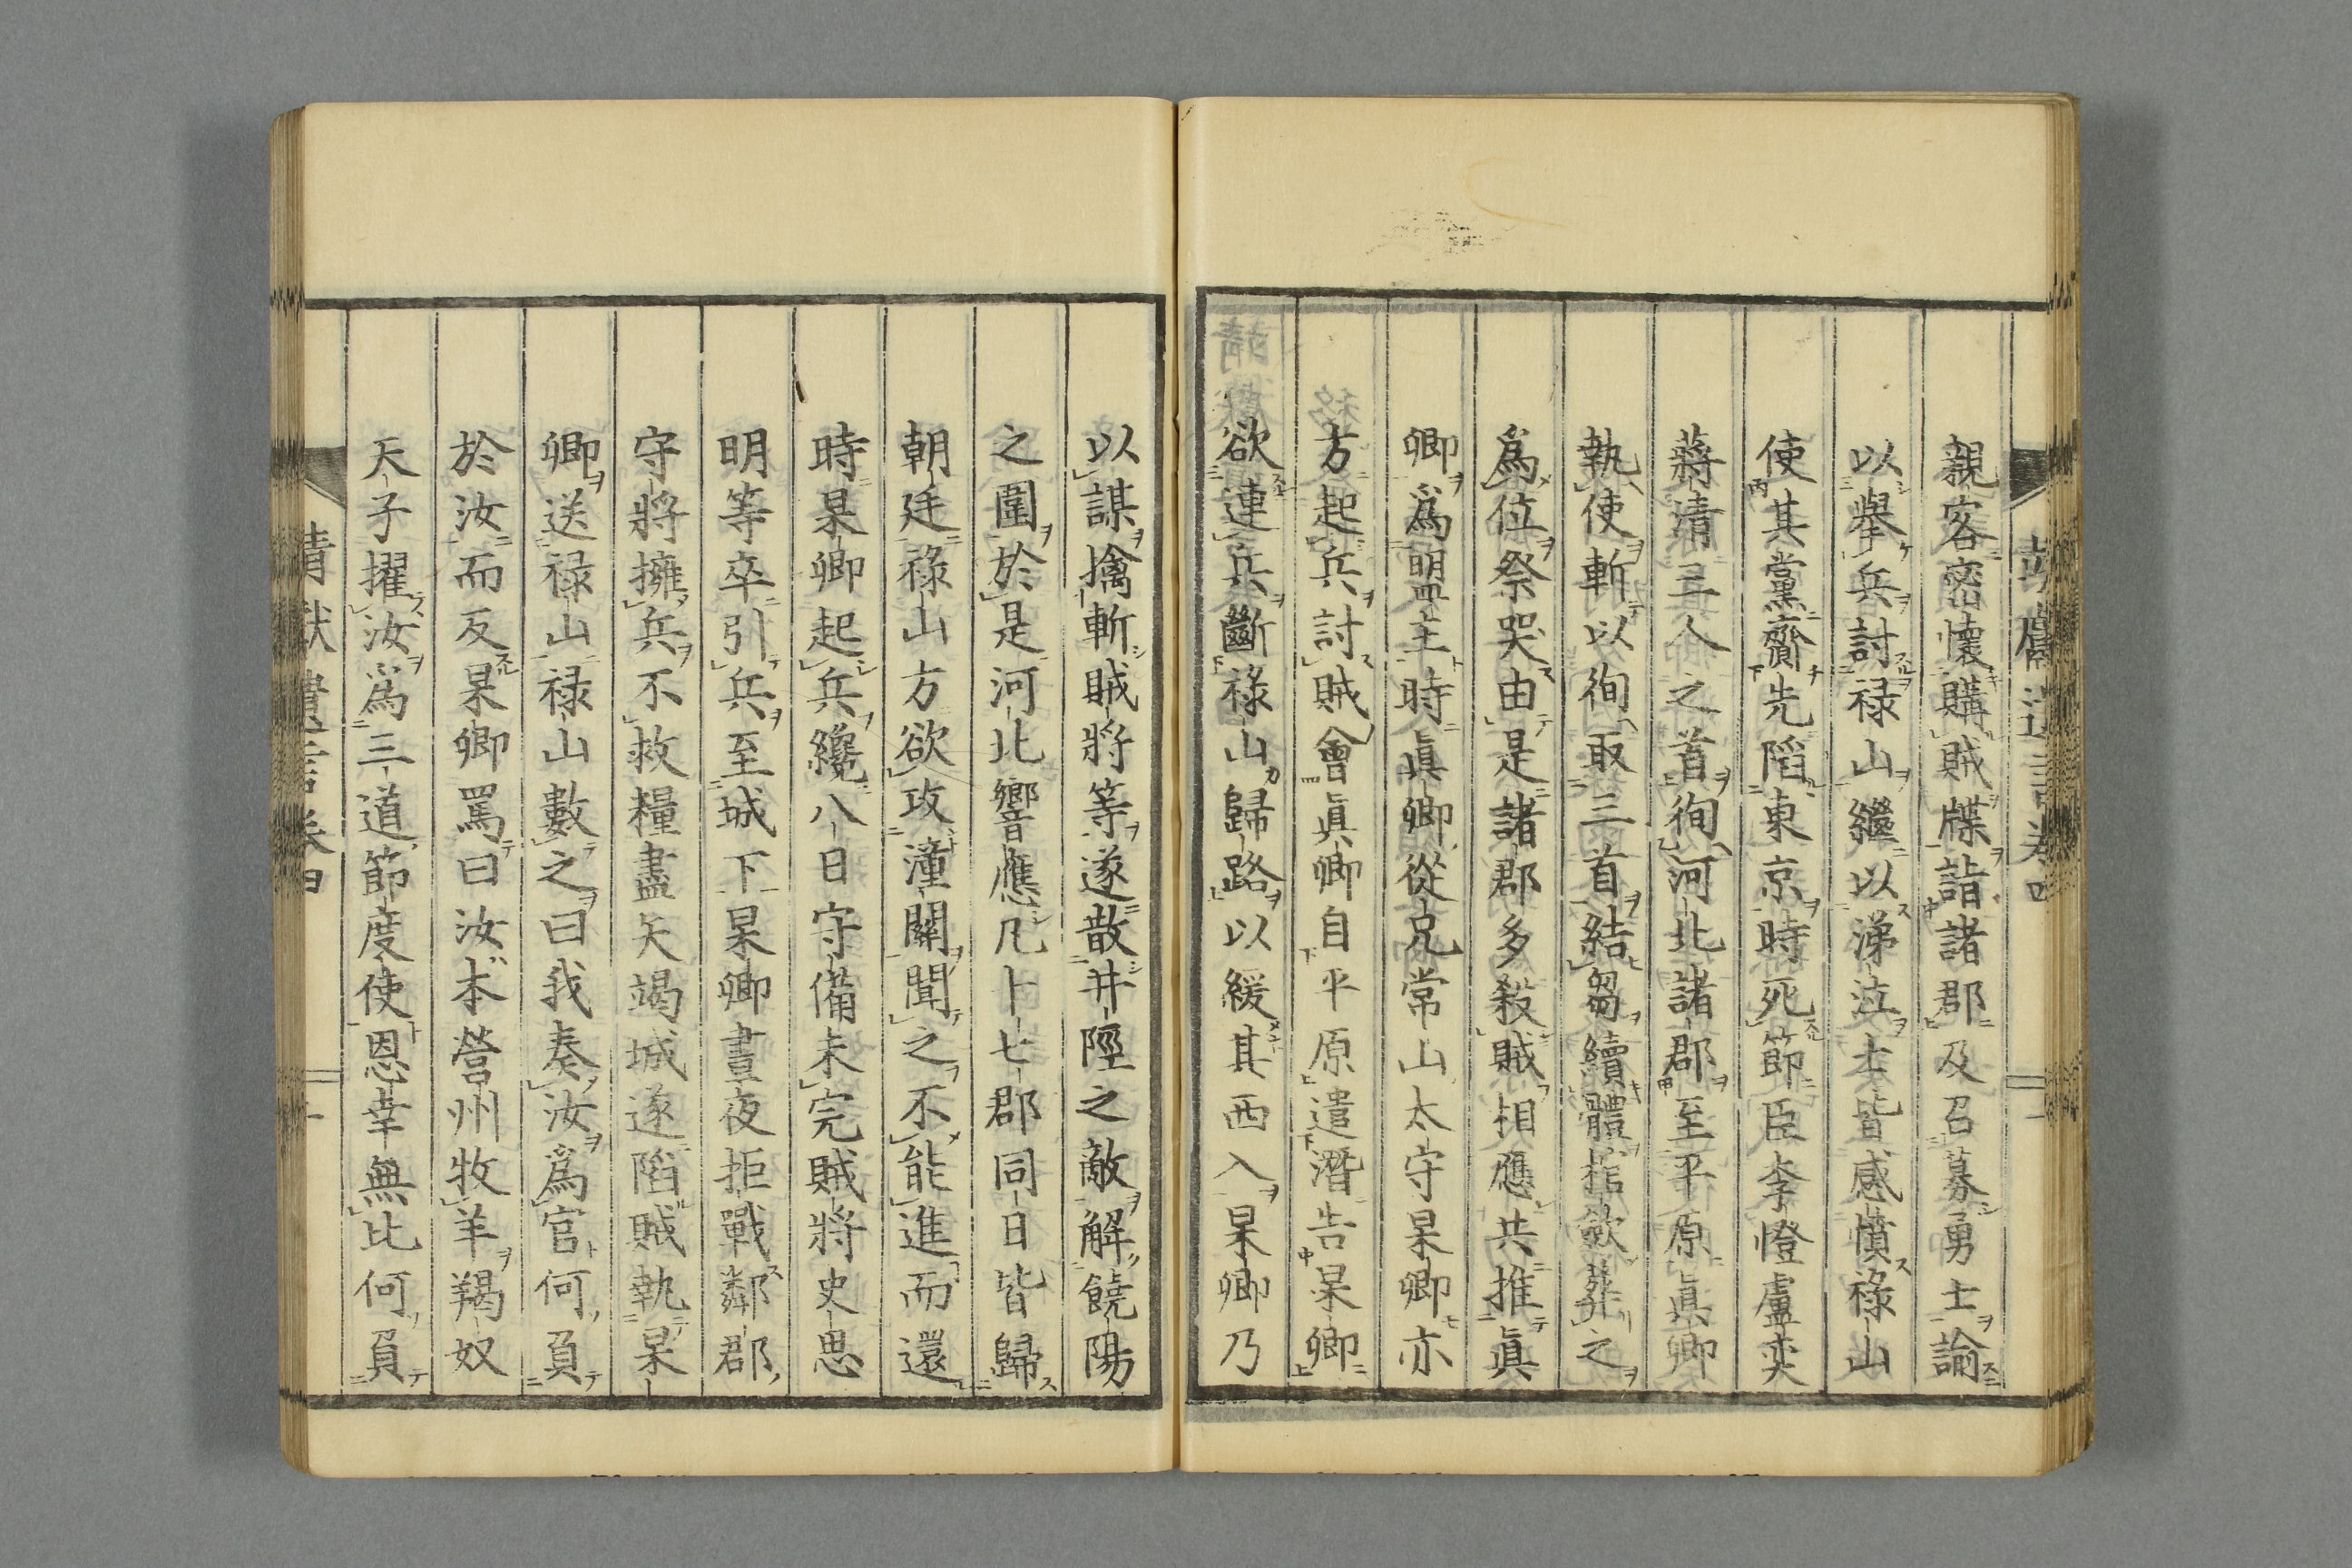 親客密懷購賊牒詣諸郡及召募勇士諭
以舉兵討禄山繼以涕泣士皆感憤祿山
使其黨齎先陷東京時死節臣李憕盧奕
蔣清三人之首徇河北諸郡至平原眞卿
執使斬以徇取三首結芻續體棺斂葬之
爲位祭哭由是諸郡多殺賊相應共推眞
卿爲盟主時眞卿從兄常山太守杲卿亦
方起兵討賊會眞卿自平原遣潛告杲卿
欲連兵斷祿山歸路以緩其西入杲卿乃
以謀擒斬賊將等遂散井陘之敵解饒陽
之圍於是河北響應凡十七郡同日皆歸
朝廷祿山方欲攻潼關聞之不能進而還
時杲卿起兵纔八日守備未完賊將史思
明等卒引兵至城下杲卿晝夜拒戰鄰郡
守將擁兵不救糧盡矢竭城遂陷賊執杲
卿送禄山禄山數之曰我奏汝爲官何負
於汝而反杲卿罵曰汝本營州牧羊羯奴
天子擢汝爲三道節度使恩幸無比何負
靖獻遺言卷四